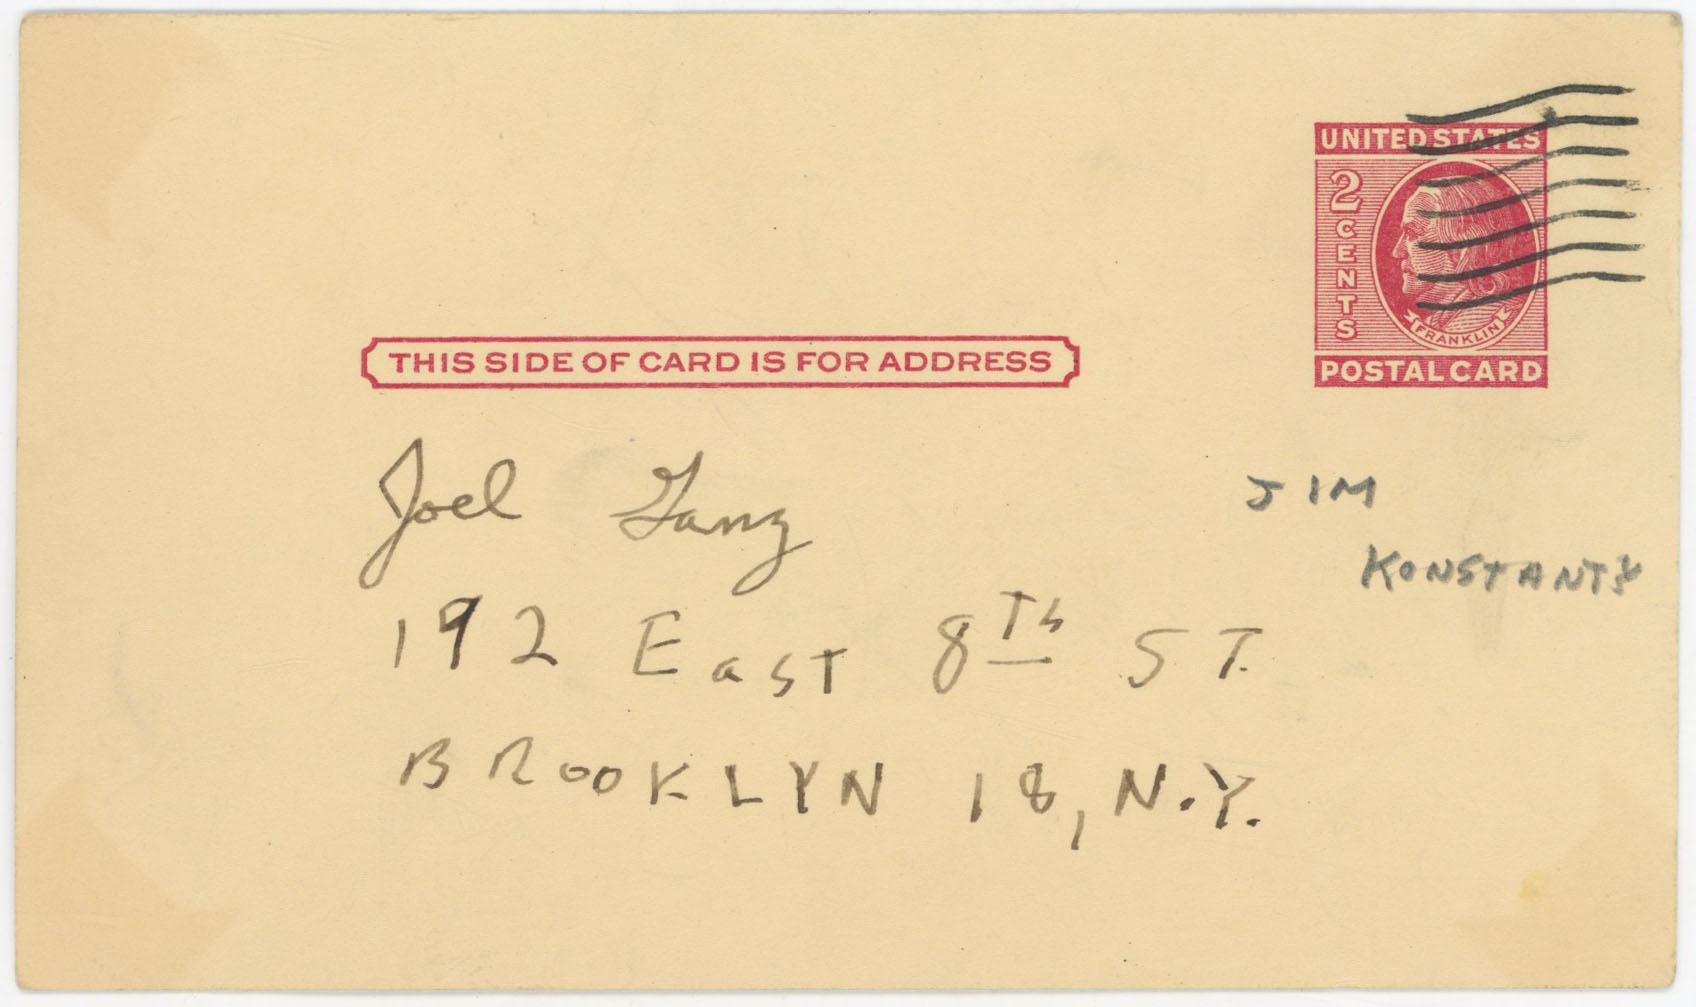 UNITED STATES
2 CENTS
FRANKLIN
POSTAL CARD
THIS SIDE OF CARD IS FOR ADDRESS
Joel Ganz
192 East 8Th ST.
BROOKLYN 18, N.Y.
JIM
KONSTANTY